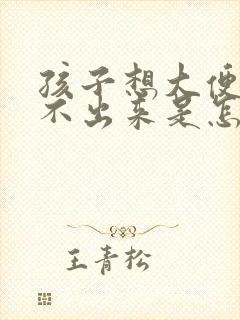 孩子想大便
不出来是怎
王青松